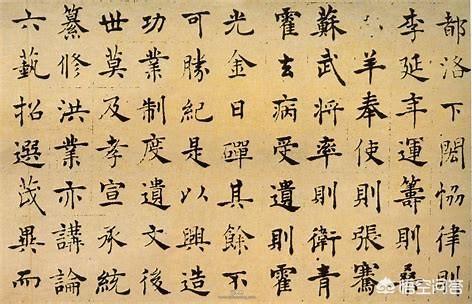 都洛下閎協律則
李延年運籌則桑
羊奉使則張騫
蘇武將率則衛青
霍去病受遺則霍
光金日磾其餘不
可勝紀是以興造
功業制度遺文後
世莫及孝宣承統
纂修洪業亦講論
六藝招選茂異而
悟空问答